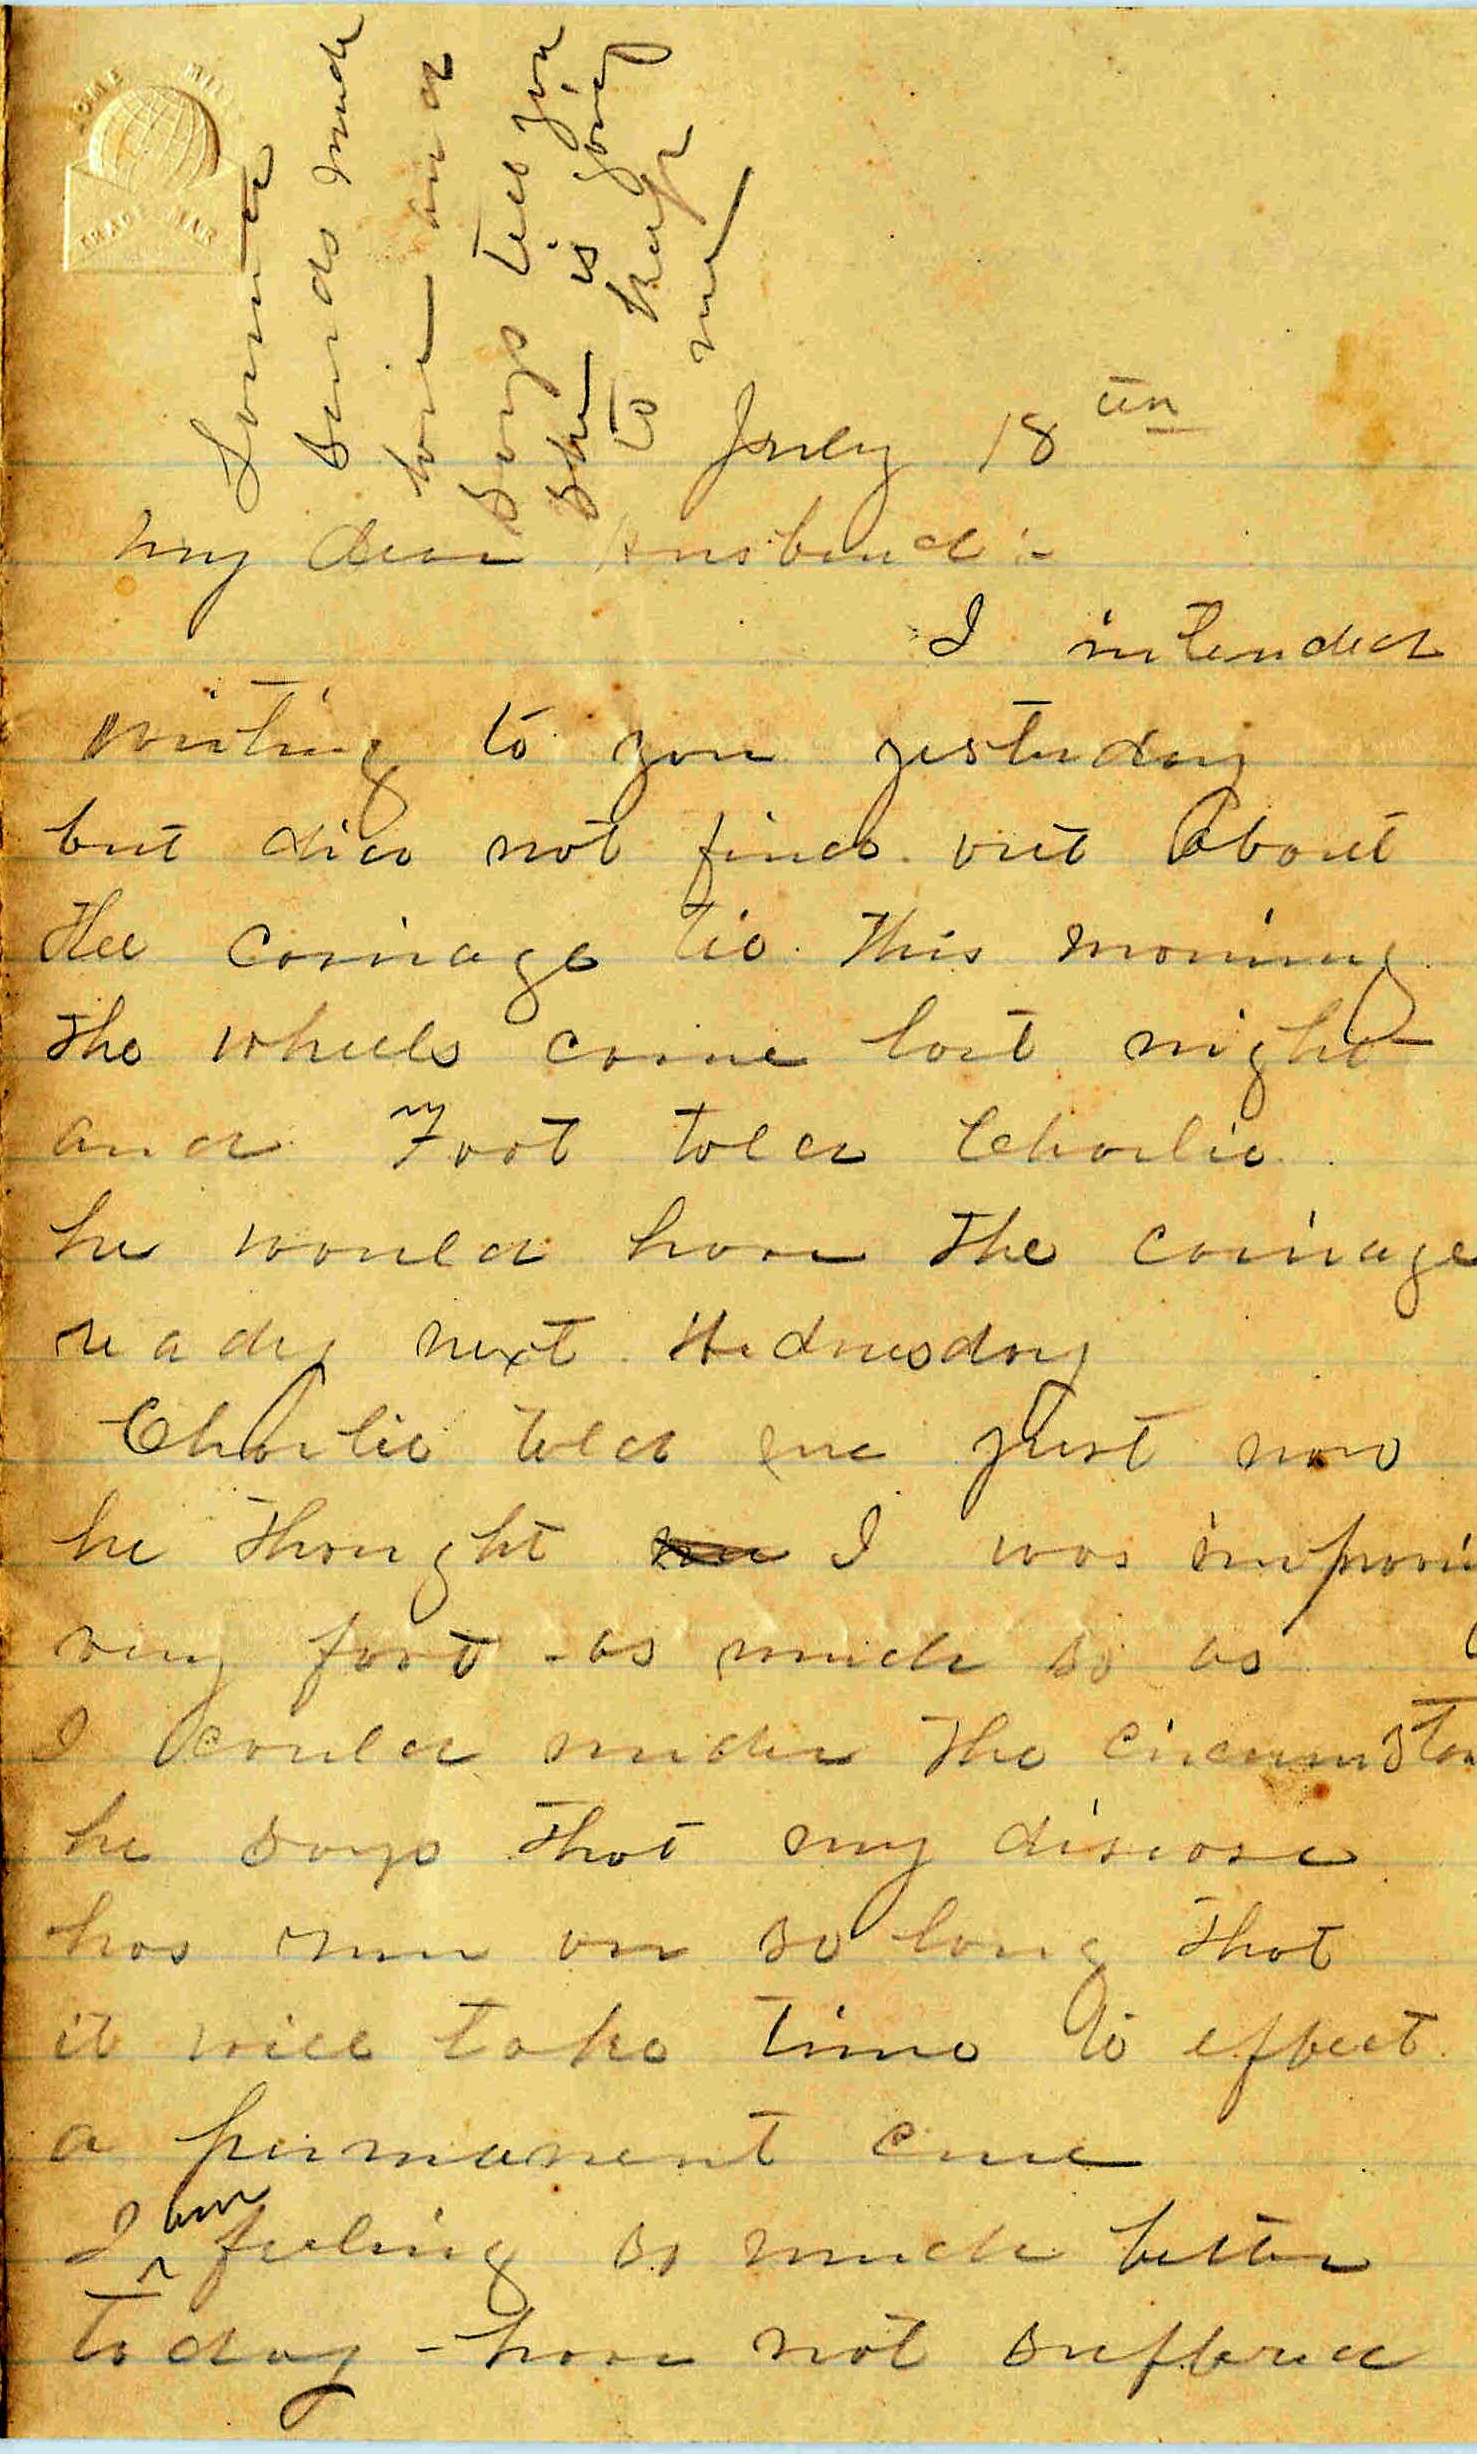 HOME MILL
TRADE MAR
Sends much
love and
says tell you
she is going
to keep
me
July 18th
My dear Husband:-
I intended
writing to you yesterday
but did not find out about
the carriage tio this morning
the wheels come last night
and Foot told Charlie
he would have the carriage
ready next Wednesday
Charlie told me just now
he thought I was improving
very fast - as much so as
I could under the circumstan
he says that my disease
has run on so long that
it will take time to effect
a permanent cure
I am feeling so much better
today - have not suffered